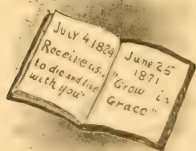 July 4, 1824
Receive us..
to die and live
with you"
June 25
1871
"Grow in
Grace"